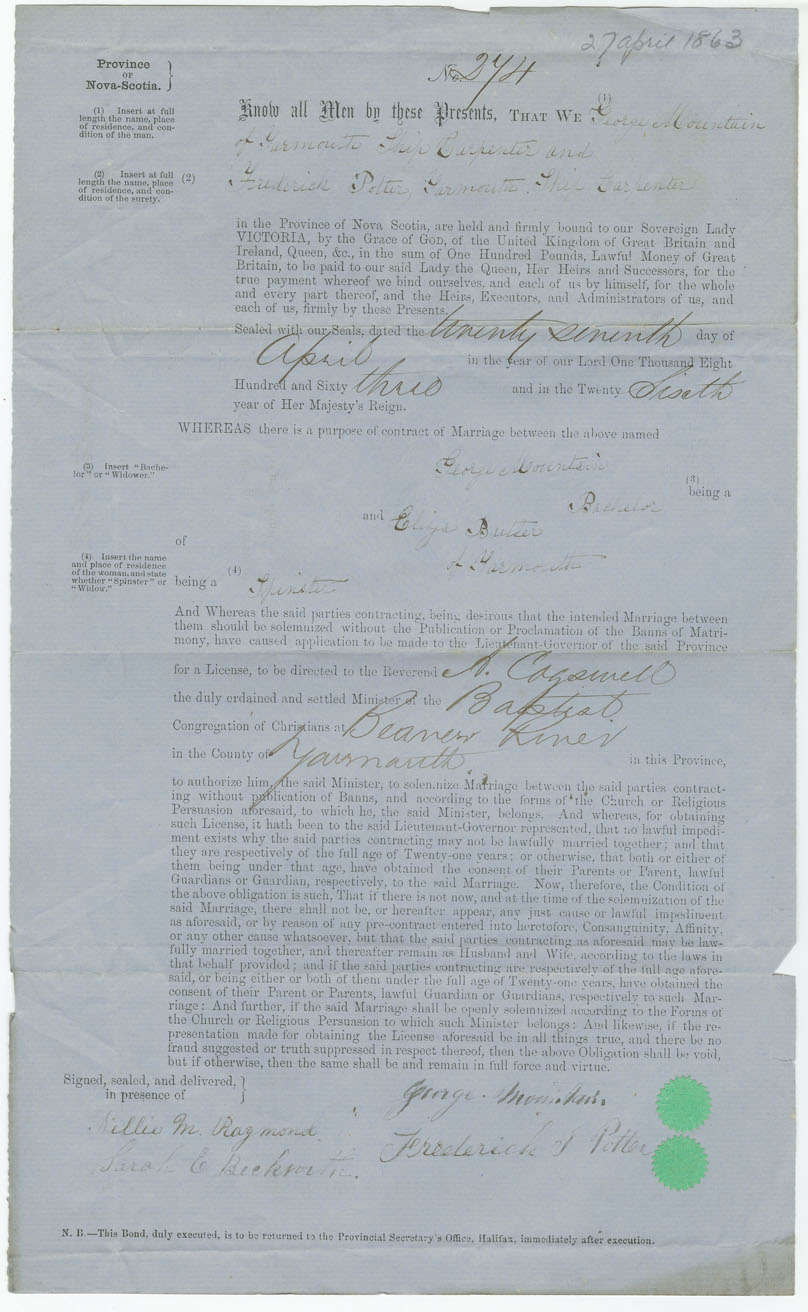 27 april 1863
Province
OF
Nova-Scotia.
No. 274
(1) Insert at full
length the name, place
of residence, and con-
dition of the man.
(1)
Know all Men by these Presents, THAT WE George Mountain
of Yarmouth Ship Carpenter and
(2) Insert at full
length the name, place
of residence, and con-
dition of the surety.
(2) Frederick Potter, Yarmouth Ship Carpenter
in the Province of Nova Scotia, are held and firmly bound to our Sovereign Lady
VICTORIA, by the Grace of GOD, of the United Kingdom of Great Britain and
Ireland, Queen, &c., in the sum of One Hundred Pounds, Lawful Money of Great
Britain, to be paid to our said Lady the Queen, Her Heirs and Successors, for the
true payment whereof we bind ourselves, and each of us by himself, for the whole
and every part thereof, and the Heirs, Executors, and Administrators of us, and
each of us, firmly by these Presents.
Sealed with our Seals, dated the twenty seventh day of
April in the year of our Lord One Thousand Eight
Hundred and Sixty three and in the Twenty Sixth
year of Her Majesty's Reign.
WHEREAS there is a purpose of contract of Marriage between the above named
(3) Insert "Bache-
lor" or "Widower."
George Mountain
(3)
being a
Bachelor
and Eliza Butler
of
of Yarmouth
(4) Insert the name
and place of residence
of the woman, and state
whether "Spinster" or
"Widow."
(4)
being a Spinster
And Whereas the said parties contracting, being desirous that the intended Marriage between
them should be solemnized without the Publication or Proclamation of the Banns of Matri-
mony, have caused application to be made to the Lieutenant-Governor of the said Province
for a License, to be directed to the Reverend A. Cogswell
the duly ordained and settled Minister of the Baptist
Congregation of Christians at Beaver River
in the County of Yarmouth in this Province,
to authorize him, the said Minister, to solemnize Marriage between the said parties contract-
ing without publication of Banns, and according to the forms of the Church or Religious
Persuasion aforesaid, to which he, the said Minister, belongs. And whereas, for obtaining
such License, it hath been to the said Lieutenant-Governor represented, that no lawful impedi-
ment exists why the said parties contracting may not be lawfully married together; and that
they are respectively of the full age of Twenty-one years; or otherwise, that both or either of
them being under that age, have obtained the consent of their Parents or Parent, lawful
Guardians or Guardian, respectively, to the said Marriage. Now, therefore, the Condition of
the above obligation is such, That if there is not now, and at the time of the solemnization of the
said Marriage, there shall not be, or hereafter appear, any just cause or lawful impediment
as aforesaid, or by reason of any pre-contract entered into heretofore, Consanguinity, Affinity,
or any other cause whatsoever, but that the said parties contracting as aforesaid may be law-
fully married together, and thereafter remain as Husband and Wife, according to the laws in
that behalf provided; and if the said parties contracting are respectively of the full age afore-
said, or being either or both of them under the full age of Twenty-one years, have obtained the
consent of their Parent or Parents, lawful Guardian or Guardians, respectively to such Mar-
riage: And further, if the said Marriage shall be openly solemnized according to the Forms of
the Church or Religious Persuasion to which such Minister belongs: And likewise, if the re-
presentation made for obtaining the License aforesaid be in all things true, and there be no
fraud suggested or truth suppressed in respect thereof, then the above Obligation shall be void,
but if otherwise, then the same shall be and remain in full force and virtue.
Signed, sealed, and delivered,
in presence of
George Mountain
Nellie M. Raymond
Frederick S Potter
Sarah E Beckwith.
N. B.—This Bond, duly executed, is to be returned to the Provincial Secretary's Office, Halifax, immediately after execution.